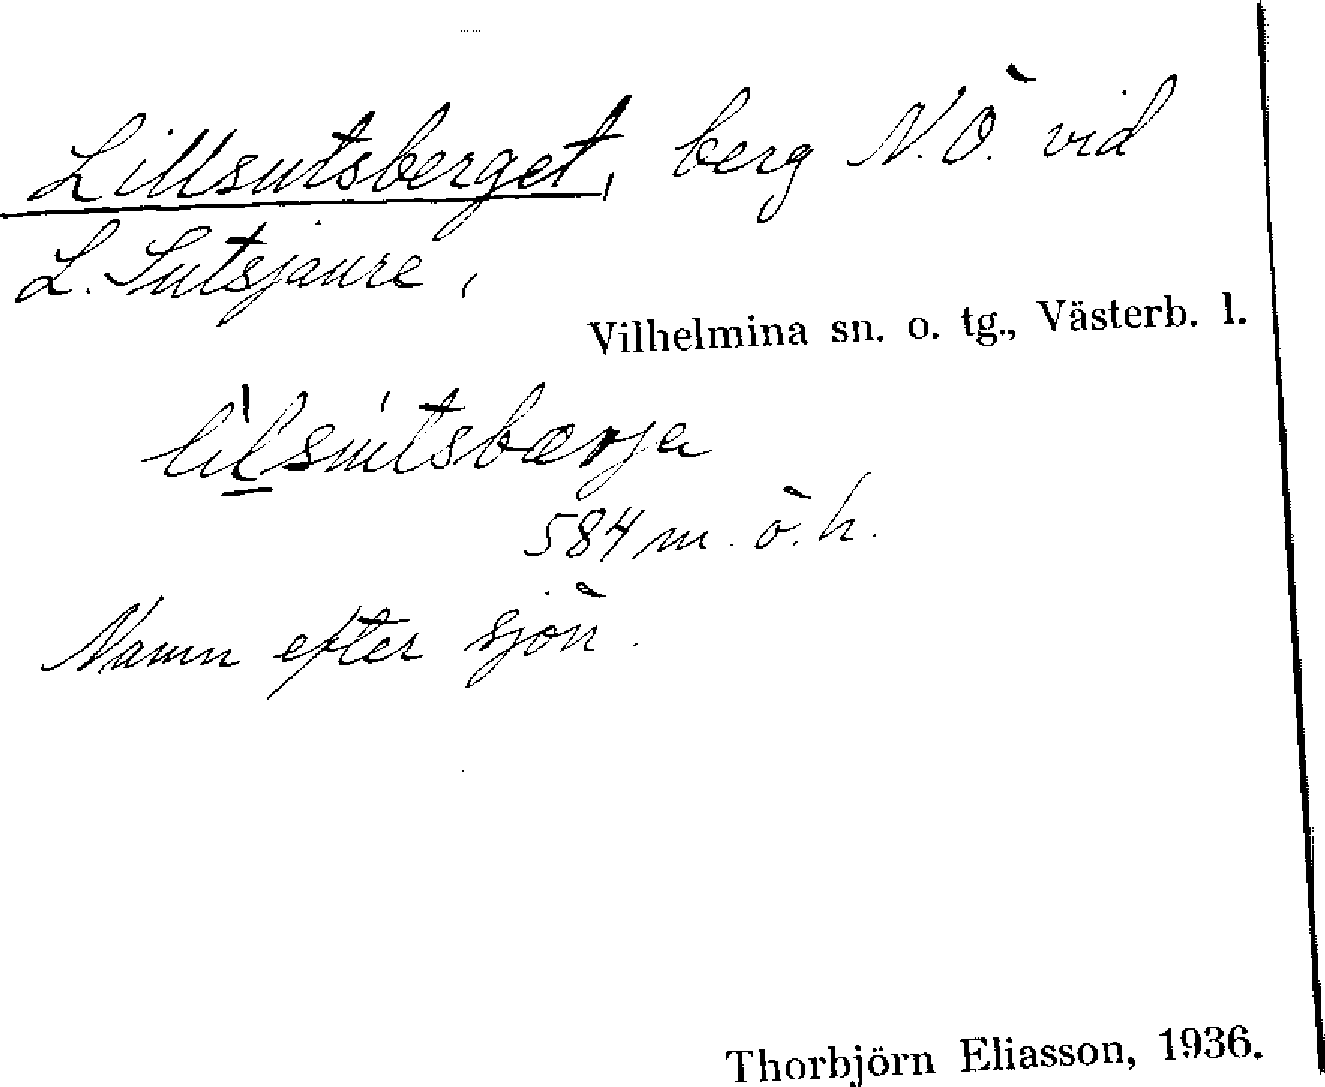 Lillsutsberget, berg N.Ö. vid
L. Sutsjaure,
Vilhelmina sn. o. tg., Västerb. l.
584 m. ö. h.
Namn efter sjön.
Thorbjörn Eliasson, 1936.